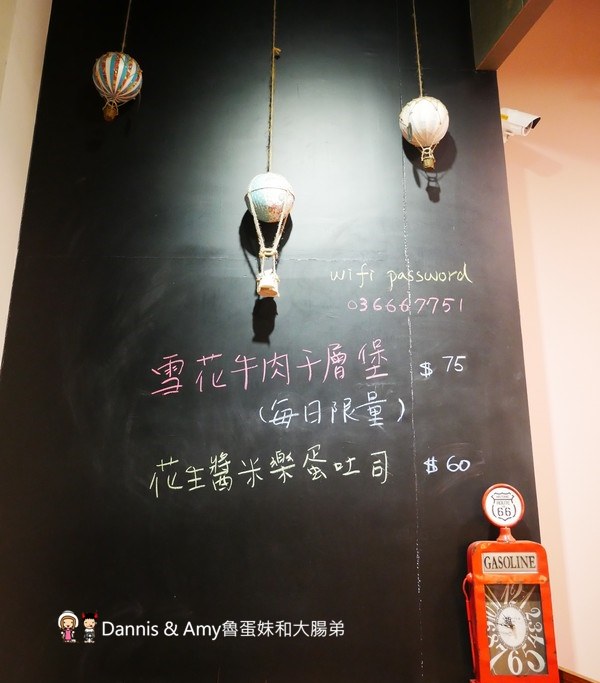 wifi password
036667751
雪花牛肉千層堡 $75
(每日限量)
花生醬米樂蛋吐司 $60
ROUTE
66
GASOLINE
Dannis & Amy魯蛋妹和大腸弟